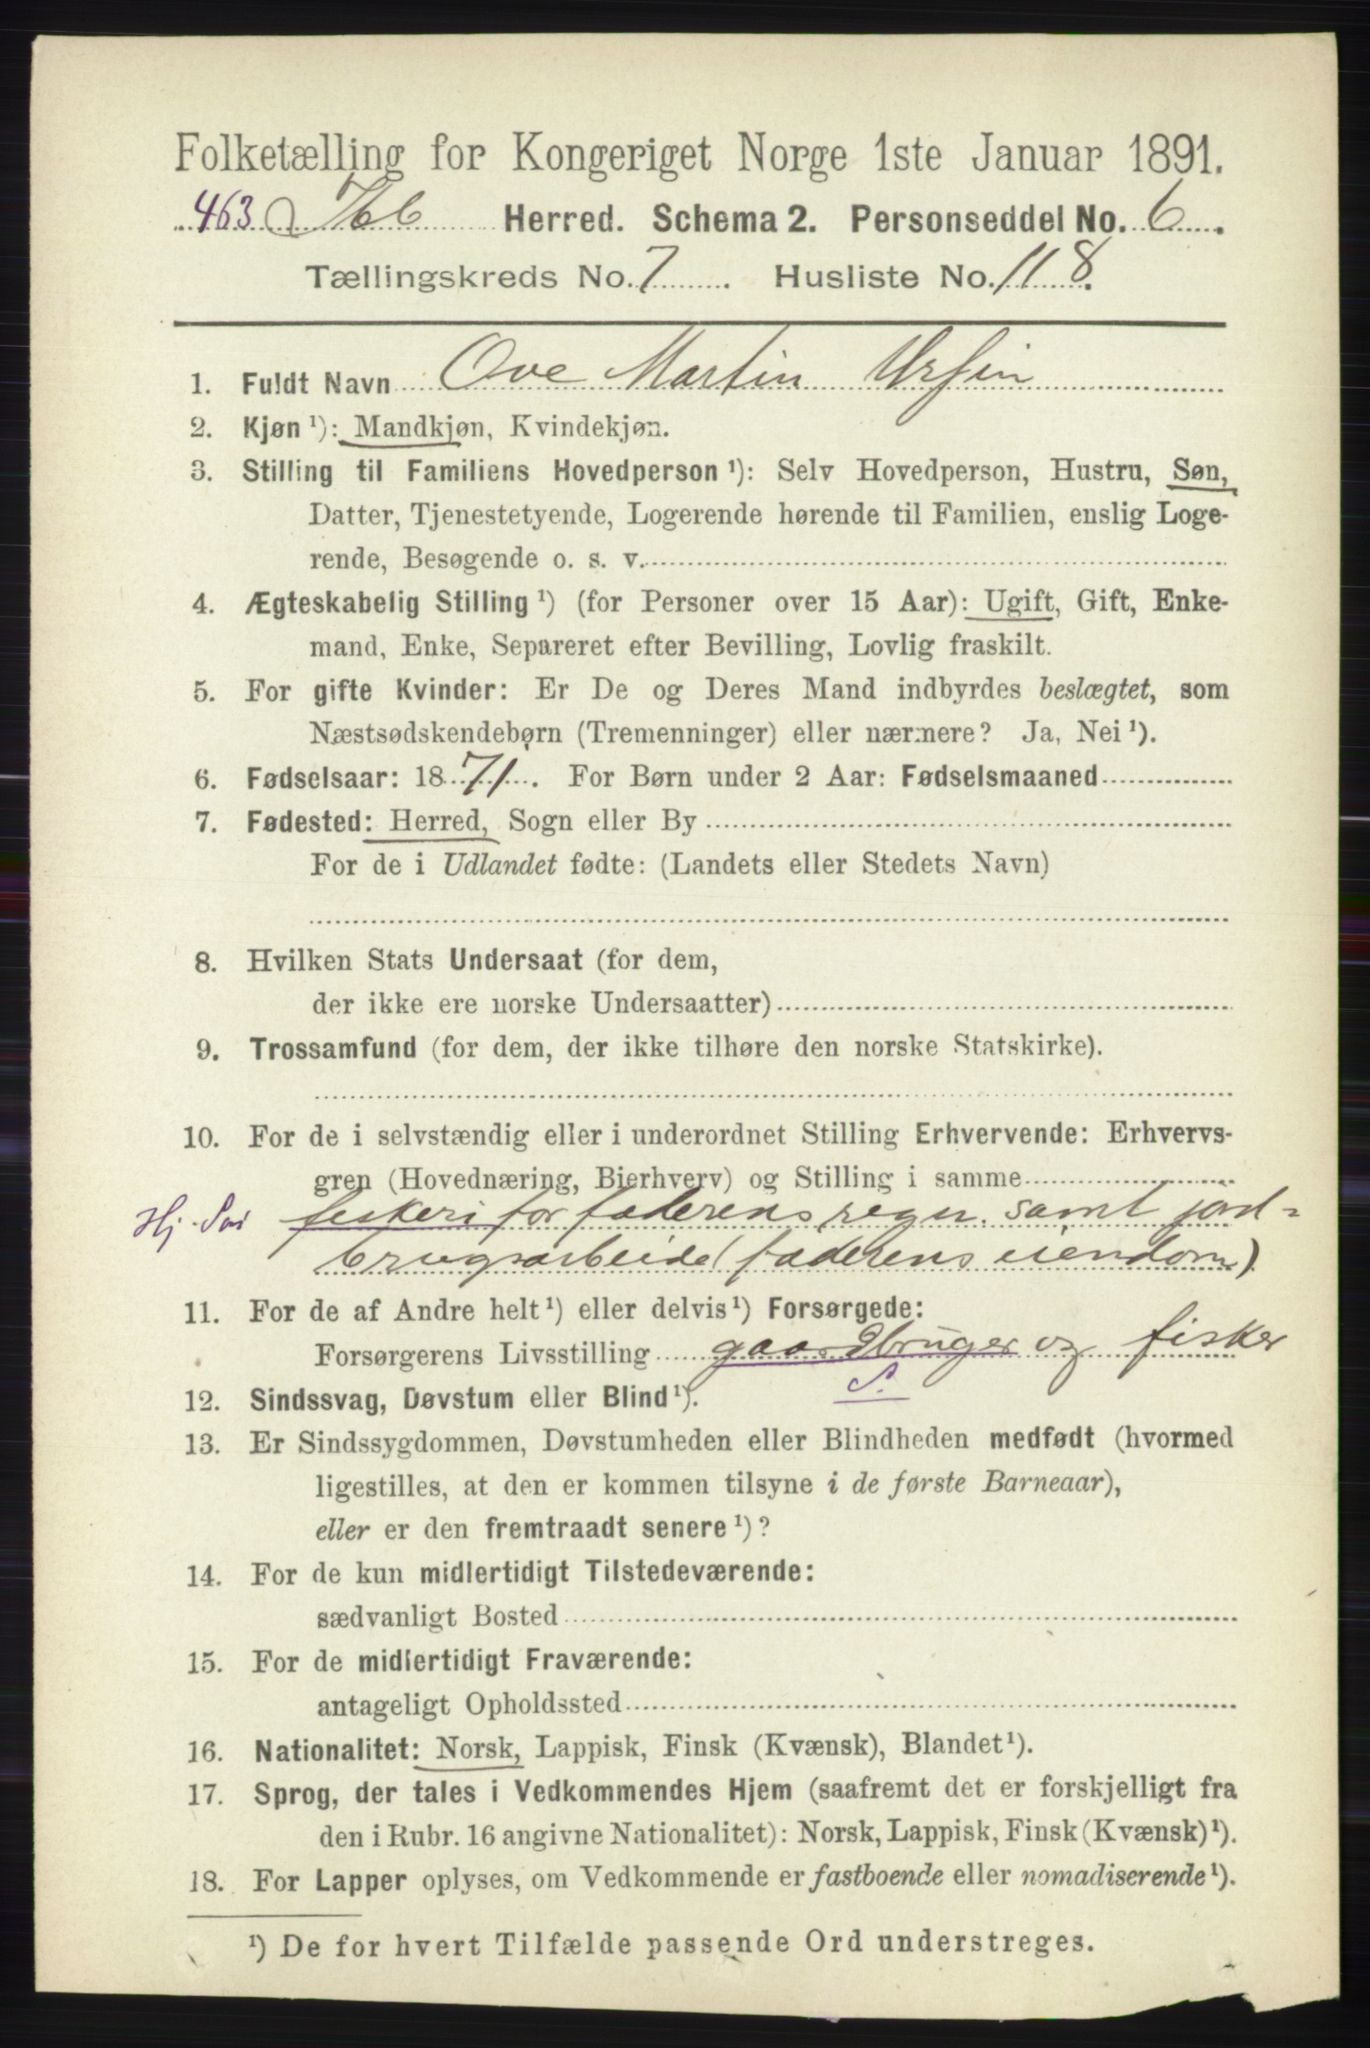 Folketælling for Kongeriget Norge 1ste Januar 1891.
463 Ibb Herred. Schema 2. Personseddel No. 6.
Tællingskreds No. 7. Husliste No. 118.
1. Fuldt Navn Ove Martin Ursin
2. Kjøn ¹): Mandkjøn, Kvindekjøn.
3. Stilling til Familiens Hovedperson ¹): Selv Hovedperson, Hustru, Søn,
Datter, Tjenestetyende, Logerende hørende til Familien, enslig Loge-
rende, Besøgende o. s. v.
4. Ægteskabelig Stilling ¹) (for Personer over 15 Aar): Ugift, Gift, Enke-
mand, Enke, Separeret efter Bevilling, Lovlig fraskilt.
5. For gifte Kvinder: Er De og Deres Mand indbyrdes beslægtet, som
Næstsødskendebørn (Tremenninger) eller nærmere? Ja, Nei ¹).
6. Fødselsaar: 1871. For Børn under 2 Aar: Fødselsmaaned
7. Fødested: Herred, Sogn eller By
For de i Udlandet fødte: (Landets eller Stedets Navn)
8. Hvilken Stats Undersaat (for dem,
der ikke ere norske Undersaatter)
9. Trossamfund (for dem, der ikke tilhøre den norske Statskirke).
10. For de i selvstændig eller i underordnet Stilling Erhvervende: Erhvervs-
gren (Hovednæring, Bierhverv) og Stilling i samme
Hj. Søn fiskeri for faderens regn. samt jord-
brugsarbeide (faderens eiendom)
11. For de af Andre helt ¹) eller delvis ¹) Forsørgede:
Forsørgerens Livsstilling gaardbruger og fisker
S.
12. Sindssvag, Døvstum eller Blind ¹).
13. Er Sindssygdommen, Døvstumheden eller Blindheden medfødt (hvormed
ligestilles, at den er kommen tilsyne i de første Barneaar),
eller er den fremtraadt senere ¹)?
14. For de kun midlertidigt Tilstedeværende:
sædvanligt Bosted
15. For de midlertidigt Fraværende:
antageligt Opholdssted
16. Nationalitet: Norsk, Lappisk, Finsk (Kvænsk), Blandet ¹).
17. Sprog, der tales i Vedkommendes Hjem (saafremt det er forskjelligt fra
den i Rubr. 16 angivne Nationalitet): Norsk, Lappisk, Finsk (Kvænsk) ¹).
18. For Lapper oplyses, om Vedkommende er fastboende eller nomadiserende ¹).
¹) De for hvert Tilfælde passende Ord understreges.